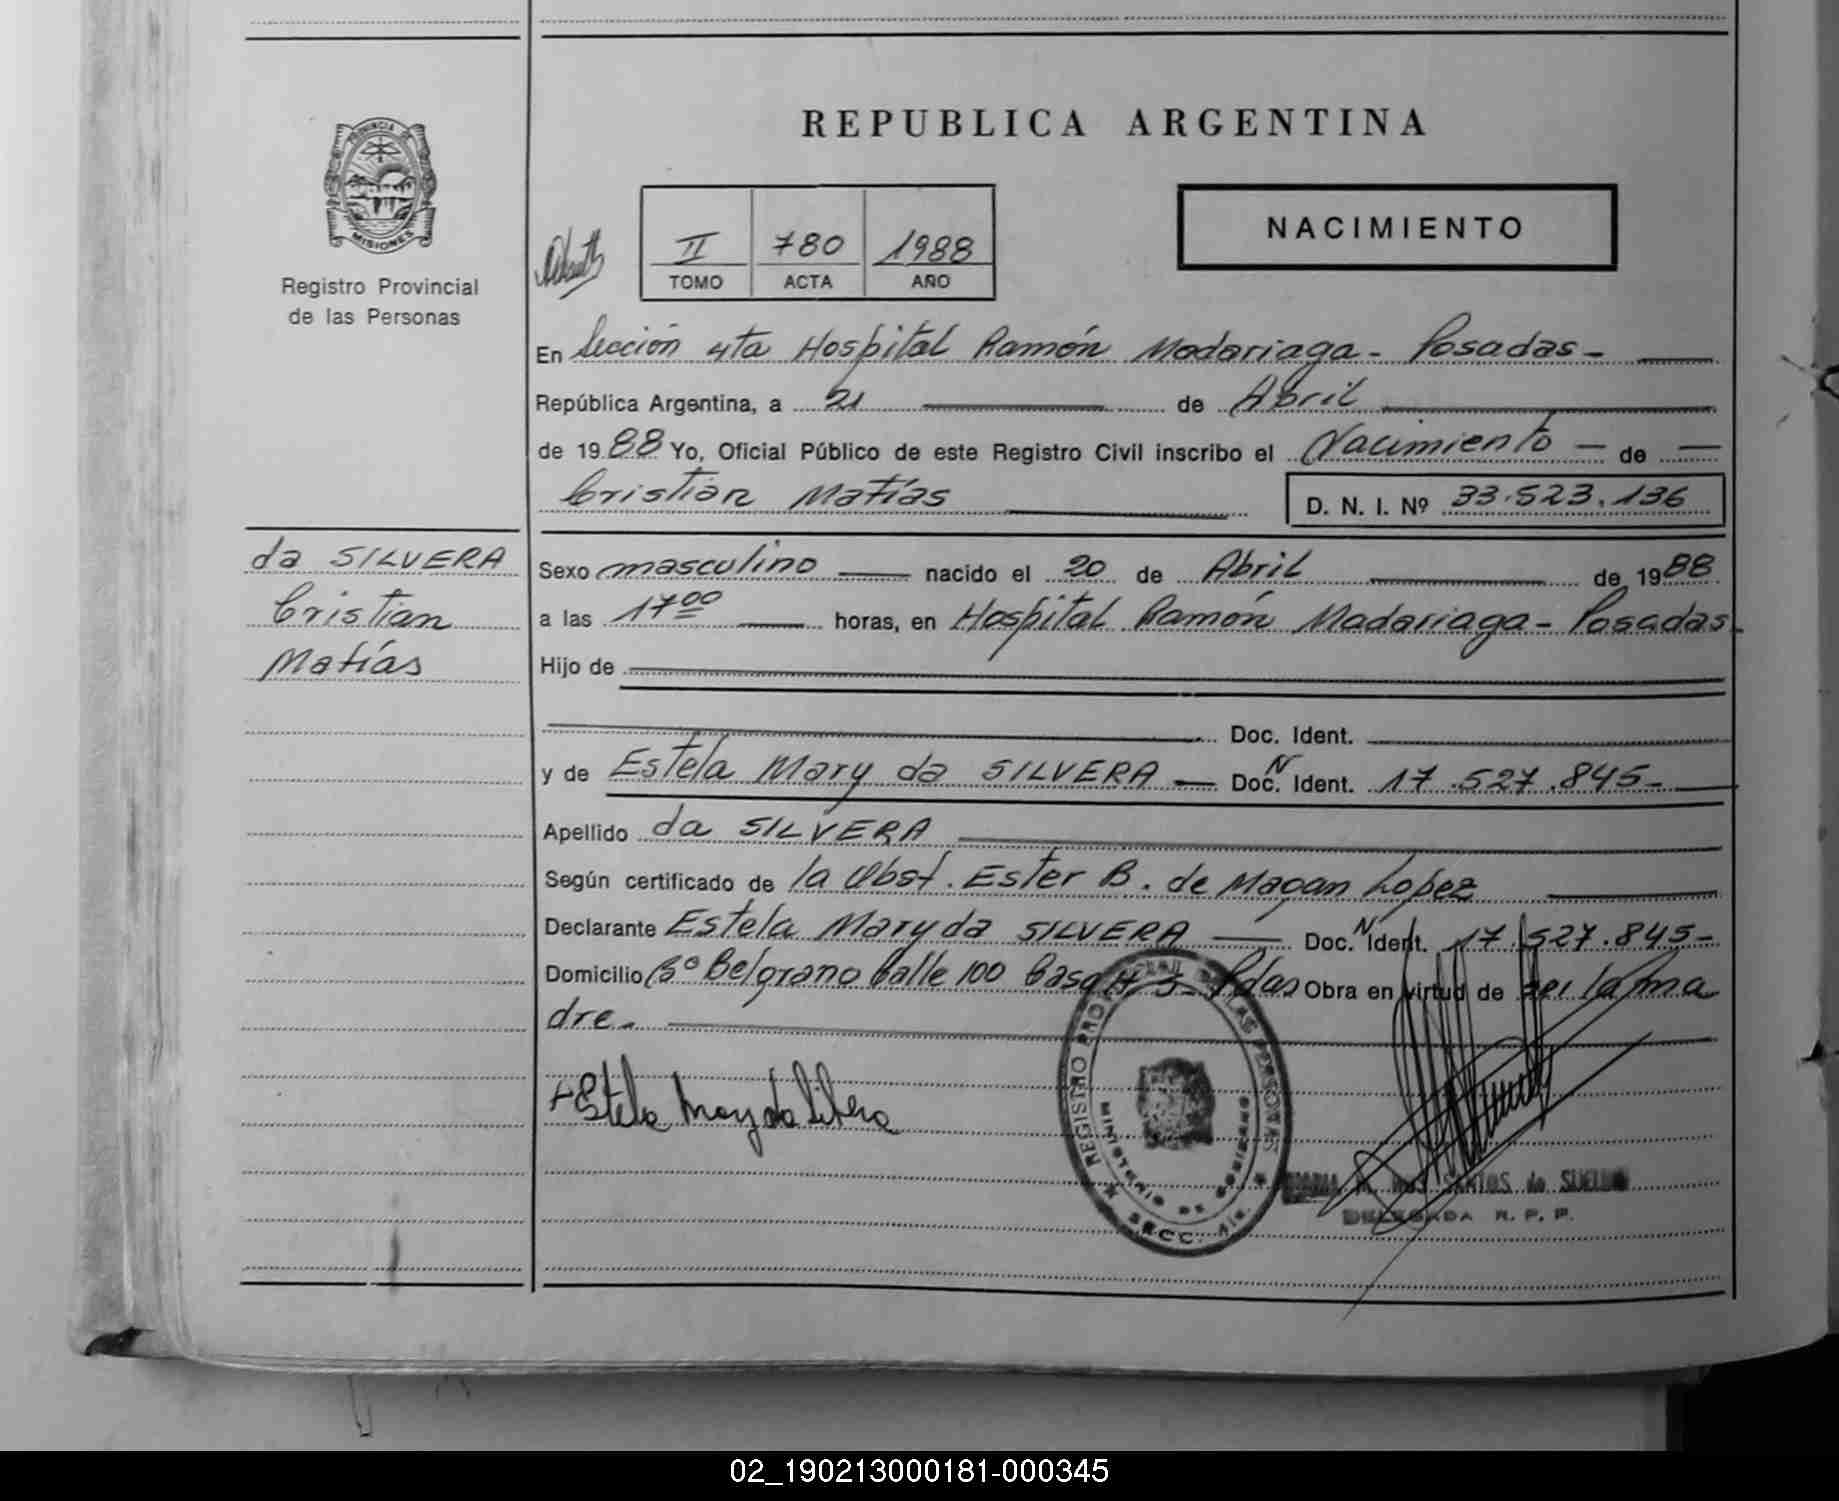 REPUBLICA ARGENTINA
PROVINCIA DE
MISIONES
Registro Provincial
de las Personas
II 780 1988
TOMO ACTA AÑO
NACIMIENTO
En Sección 4ta Hospital Ramón Madariaga - Posadas -
República Argentina, a 21 de Abril
de 1988 Yo, Oficial Público de este Registro Civil inscribo el Nacimiento - de -
Cristian Matías D. N. I. Nº 33.523.136
da SILVERA
Cristian
Matías
Sexo masculino nacido el 20 de Abril de 1988
a las 17 00 horas, en Hospital Ramón Madariaga - Posadas -
Hijo de
Doc. Ident.
y de Estela Mary da SILVERA - Doc. N Ident. 17.527.845 -
Apellido da SILVERA
Según certificado de la Obst. Ester B. de Magan Lopez
Declarante Estela Mary da SILVERA Doc. N Ident. 17.527.845 -
Domicilio Bº Belgrano Calle 100 Casa Pdas Obra en virtud de ser la ma
dre.
Estela Mary da Silvera
REGISTRO PROVINCIAL DE LAS PERSONAS
MINISTERIO DE GOBIERNO
SECC. 4ta.
MARIA DOS SANTOS de
DELEGADA R. P. P.
02_190213000181-000345